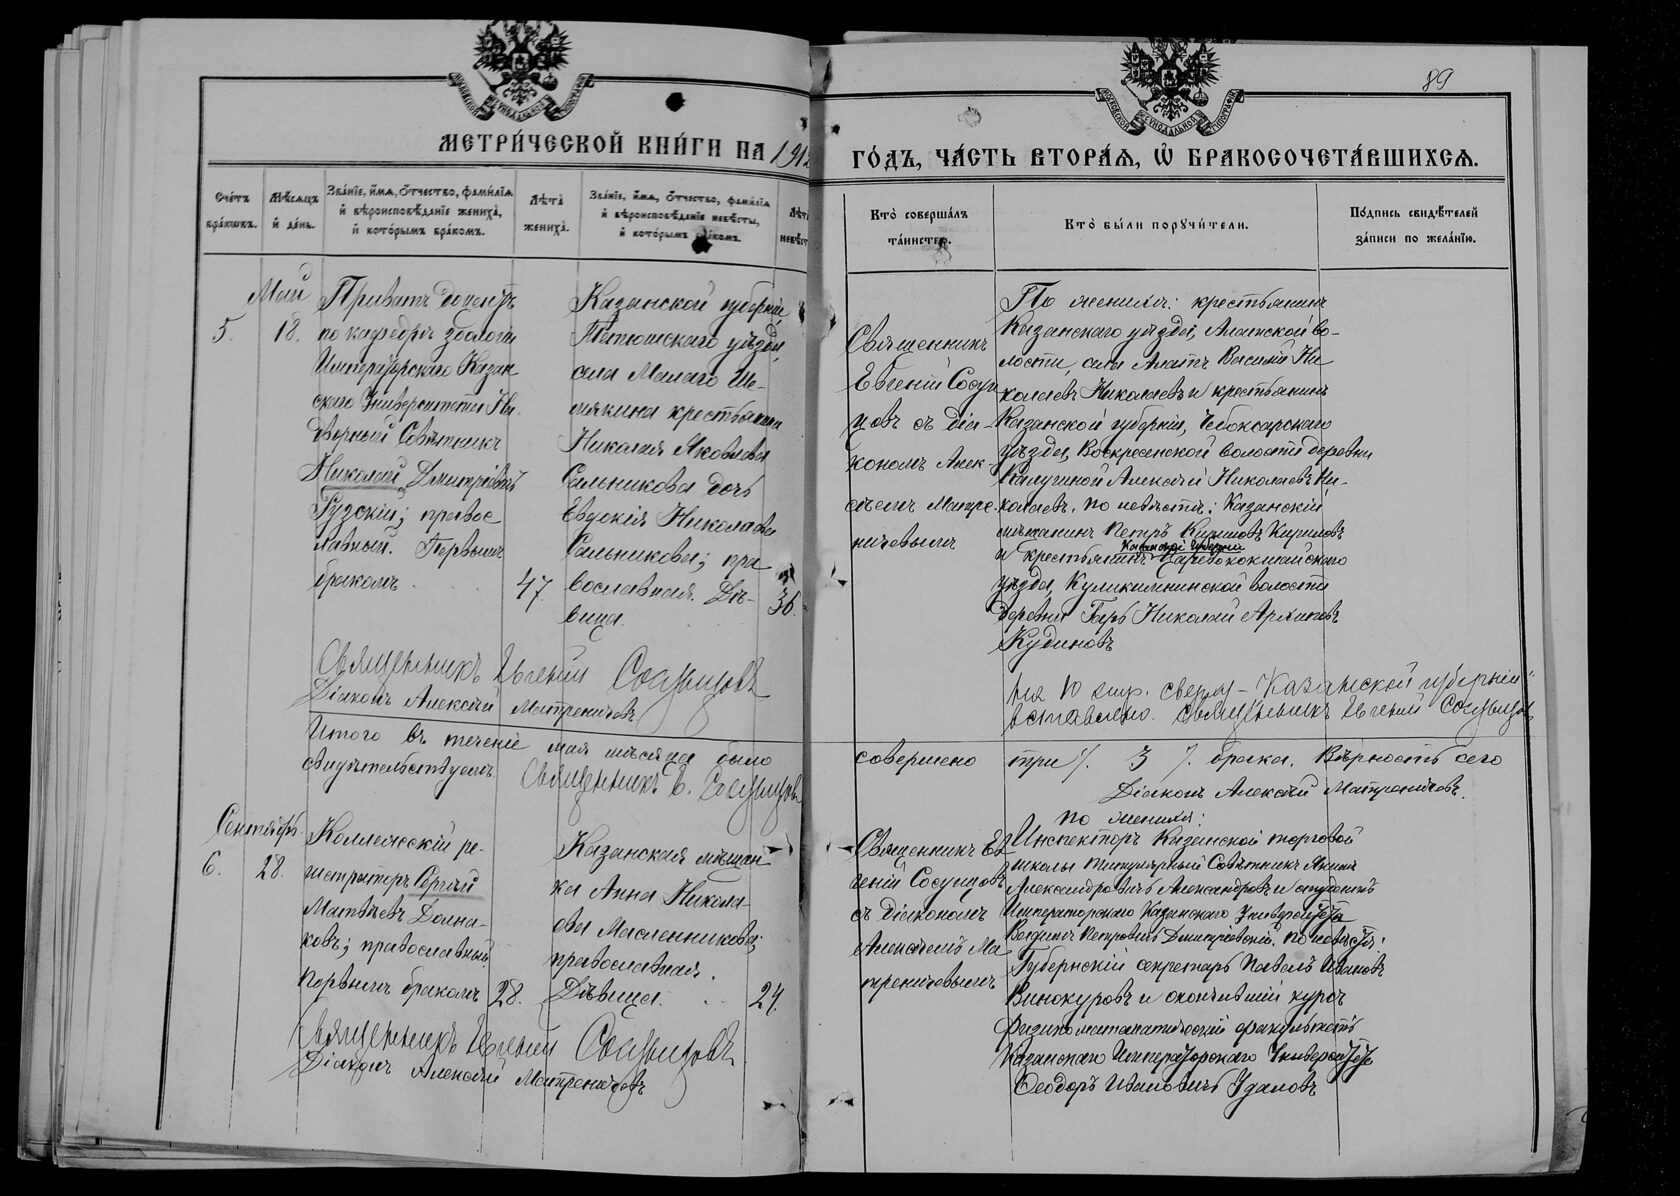 89
МЕТРИЧЕСКОЙ КНИГИ НА 1912
ГОДЪ, ЧАСТЬ ВТОРАЯ, Ѽ БРАКОСОЧЕТАВШИХСЯ.
Счетъ браковъ.
Мѣсяцъ и день.
Званіе, имя, отчество, фамилія
и вѣроисповѣданіе жениха,
и которымъ бракомъ.
Лѣта жениха.
Званіе, имя, отчество, фамилія
и вѣроисповѣданіе невѣсты,
и которымъ бракомъ.
Лѣта
невѣст
Кто совершалъ
таинство.
Кто были поручители.
Подпись свидѣтелей
записи по желанію.
5.
Май
18.
Приватъ доцентъ
по кафедрѣ зоологіи
Императорскаго Казан
скаго Университета На
дворный Совѣтникъ
Николай Дмитріевичъ
Рузскій; правос
лавный. Первымъ
бракомъ
47.
Казанской губерніи,
Тетюшскаго уѣзда,
села Малаго Ше-
мякина крестьянина
Николая Яковлева
Сальникова дочь
Евдокія Николаева
Сальникова; пра
вославная. Дѣ-
вица.
36.
Священникъ
Евгеній Сосун
цовъ съ діа-
кономъ Алек-
сѣемъ Матре-
ничевымъ
По женихѣ: крестьянинъ
Казанскаго уѣзда, Алатской во-
лости, села Алатъ Василій Ни
колаевъ Николаевъ и крестьянинъ
Казанской губерніи, Чебоксарскаго
уѣзда, Воскресенской волости деревни
Калугиной Алексѣй Николаевъ Ни-
колаевъ. По невѣстѣ: Казанскій
мѣщанинъ Петръ Кириловъ Кириловъ
Казанской губерніи
и крестьянинъ Царевококшайскаго
уѣзда, Кулик­иминской волости
деревни Гарь Николай Архиповъ
Кудиновъ
Священникъ Евгеній Сосунцовъ
Діаконъ Алексѣй Матреничевъ
на 10 стр. сверху - "Казанской губерніи"
вставлено. Священникъ Евгеній Сосунцовъ
Итого въ теченіе мая мѣсяца было
совершено три /. 3 /. брака. Вѣрность сего
свидѣтельствуемъ. Священникъ Е. Сосунцовъ
Діаконъ Алексѣй Матреничевъ.
6.
Сентябрь.
28.
Коллежскій ре-
гистраторъ Сергѣй
Матвѣевъ Долна-
ковъ; православный.
Первымъ бракомъ
28.
Казанская мѣщан
ка Анна Никола-
ева Масленникова;
православная.
Дѣвица.
24.
Священникъ Ев
геній Сосунцовъ
съ діакономъ
Алексѣемъ Ма
треничевымъ
По женихѣ:
Инспекторъ Казанской торговой
школы Титулярный Совѣтникъ
Александровичъ Александровъ и студентъ
Императорскаго Казанскаго Университета
Вадимъ Петровичъ Дмитріевскій. По невѣстѣ:
Губернскій секретарь Павелъ Ивановъ
Винокуровъ и окончившій курсъ
физико математическій факультетъ
Казанскаго Императорскаго Университета
Ѳеодоръ Ивановичъ Удаловъ
Священникъ Евгеній Сосунцовъ
Діаконъ Алексѣй Матреничевъ